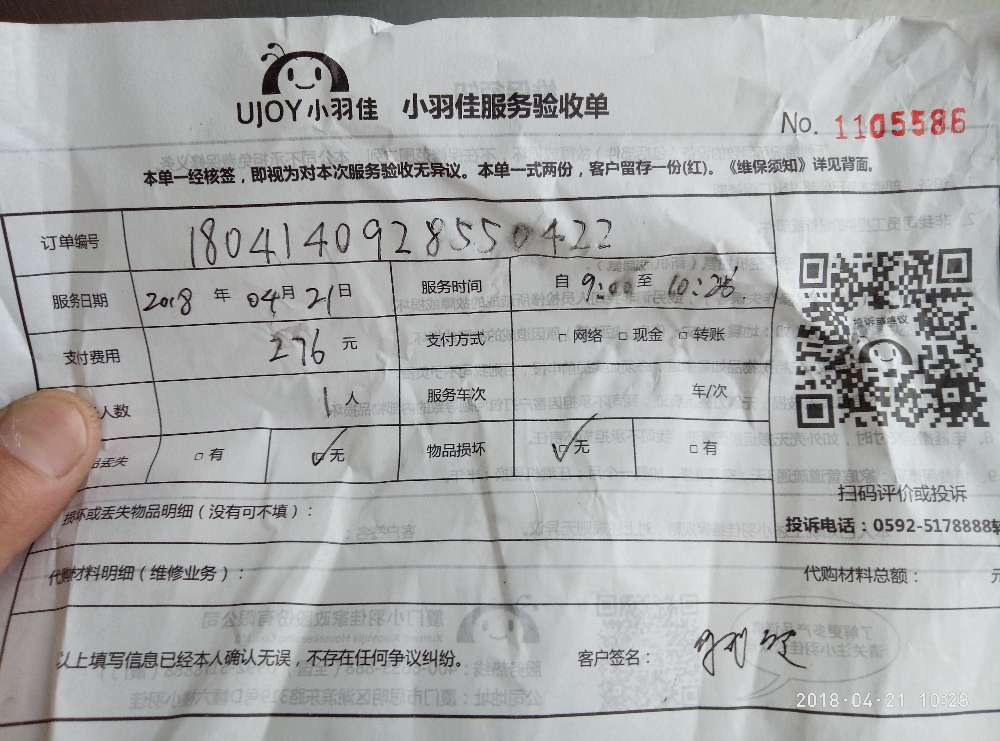 UJOY小羽佳 小羽佳服务验收单
No. 1105586
本单一经核签，即视为对本次服务验收无异议。本单一式两份，客户留存一份(红)。《维保须知》详见背面。
订单编号 180414092855 0422
服务日期 2018 年 04月 21日 服务时间 自 9:00 至 10:26
支付费用 276 元 支付方式 □ 网络 □ 现金 □ 转账
人数 1 人 服务车次 车/次
品丢失 □ 有 □ 无 物品损坏 □ 无 □ 有
投诉或建议
扫码评价或投诉
投诉电话：0592-5178888转
损坏或丢失物品明细（没有可不填）：
代购材料明细（维修业务）： 代购材料总额： 元
以上填写信息已经本人确认无误，不存在任何争议纠纷。 客户签名：
2018-04-21 10:28